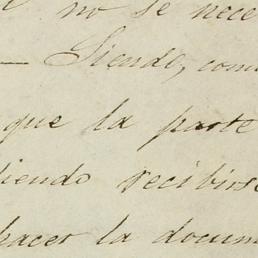 no se nece
— Siendo, com
que la parte
iendo recibirse
hacer la docum